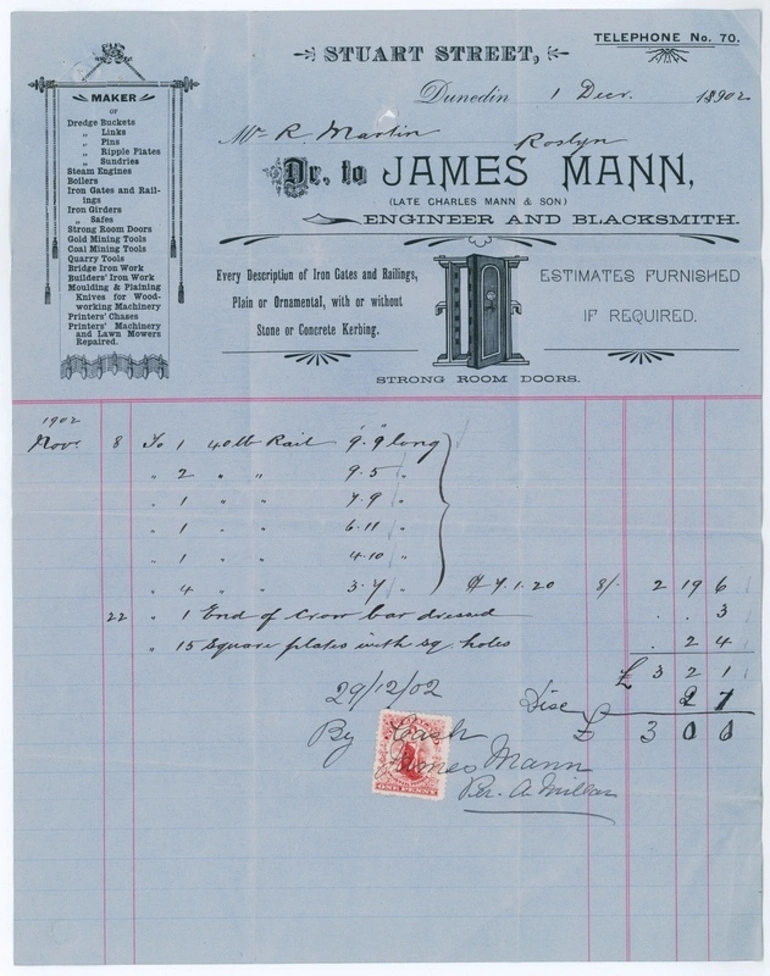 TELEPHONE No. 70.
STUART STREET,
Dunedin 1 Decr. 1902
Mr R. Martin
Roslyn
Dr. to JAMES MANN,
(LATE CHARLES MANN & SON)
ENGINEER AND BLACKSMITH.
MAKER
OF
Dredge Buckets
„ Links
„ Pins
„ Ripple Plates
„ Sundries
Steam Engines
Boilers
Iron Gates and Rail-
ings
Iron Girders
„ Safes
Strong Room Doors
Gold Mining Tools
Coal Mining Tools
Quarry Tools
Bridge Iron Work
Builders' Iron Work
Moulding & Plaining
Knives for Wood-
working Machinery
Printers' Chases
Printers' Machinery
and Lawn Mowers
Repaired.
Every Description of Iron Gates and Railings,
Plain or Ornamental, with or without
Stone or Concrete Kerbing.
STRONG ROOM DOORS.
ESTIMATES FURNISHED
IF REQUIRED.
1902
Novr 8 To 1 40lb Rail 9'.9" long
„ 2 „ „ 9.5 „
„ 1 „ „ 7.9 „
„ 1 „ „ 6.11 „
„ 1 „ „ 4.10 „
„ 4 „ „ 3.7 „ 7.1.20 8/- 2 19 6
22 „ 1 End of Crow bar dressed . . 3
„ 15 Square plates with sq. holes . 2 4
£ 3 2 1
Disc 2 1
£ 3 0 0
29/12/02
By Cash
James Mann
Per. A. Millar
ONE PENNY